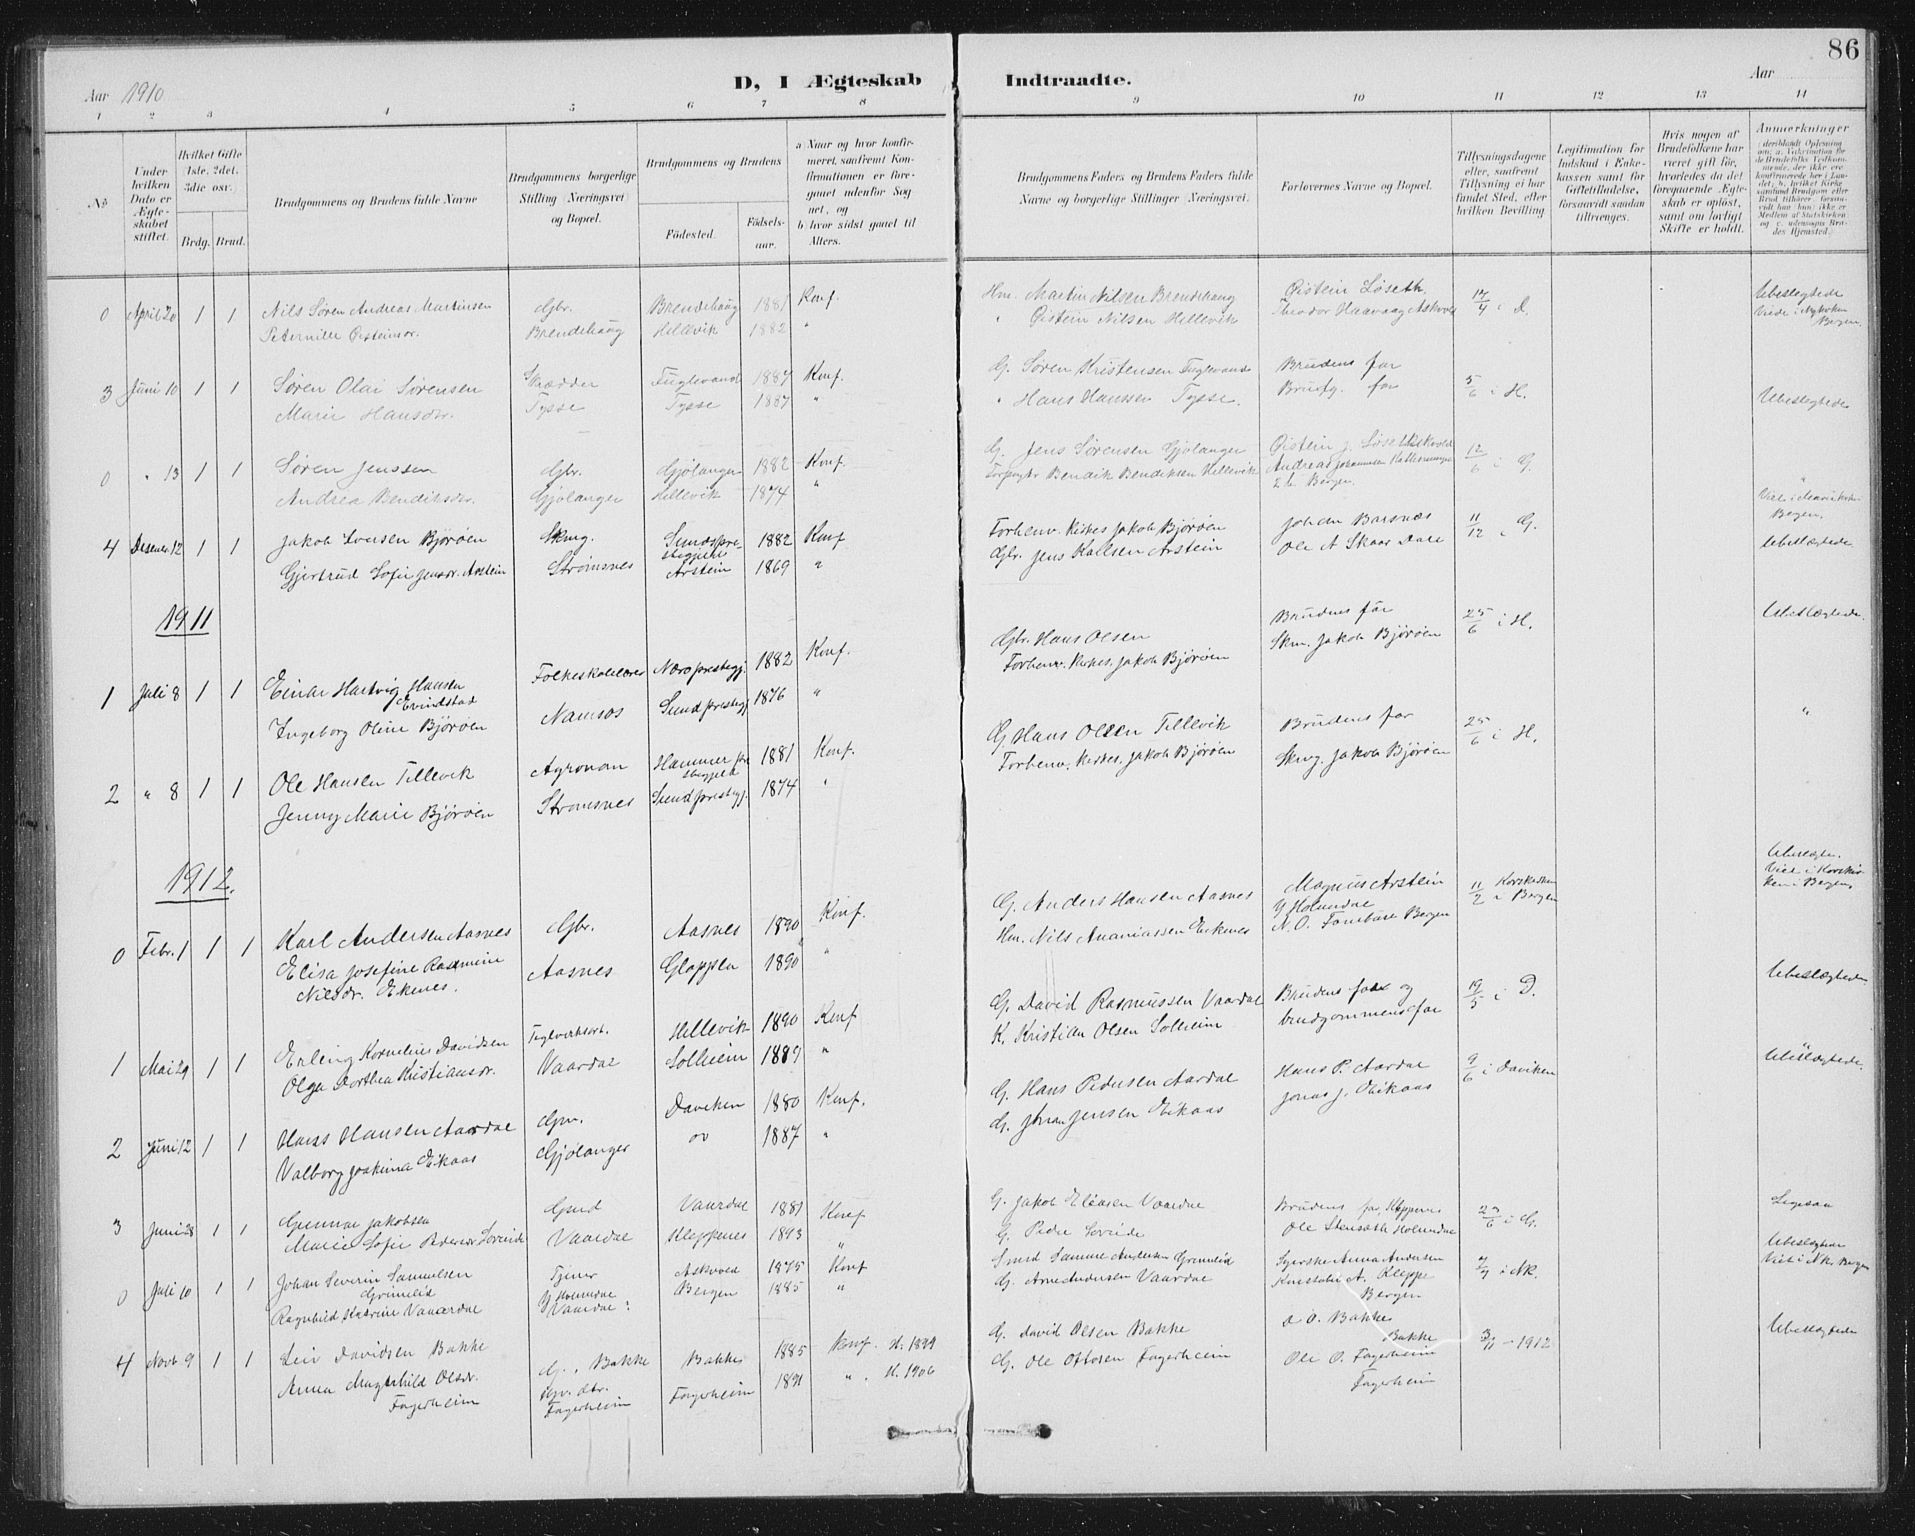 86
D, I Ægteskab Indtraadte.
Aar 1910
Aar
1 2 3 4 5 6 7 8 9 10 11 12 13 14
No
Under hvilken Dato er Ægteskabet stiftet.
Hvilket Gifte 1ste, 2det, 3die osv.
Brdg. Brud.
Brudgommens og Brudens fulde Navne
Brudgommens borgerlige Stilling Næringsvei og Bopæl.
Brudgommens og Brudens
Fødested.
Fødselsaar.
a Naar og hvor konfirmeret, saafremt Konfirmationen er foregaaet udenfor Sognet, og
b hvor sidst gaaet til Alters.
Brudgommens Faders og Brudens Faders fulde Navne og borgerlige Stillinger Næringsvei.
Forlovernes Navne og Bopæl.
Tillysningsdagene eller, saafremt Tillysning ei har fundet Sted, efter hvilken Bevilling
Legitimation for Indskud i Enkekassen samt for Giftetilladelse, forsaavidt saadan tiltrænges.
Hvis nogen af Brudefolkene har været gift før, hvorledes da det foregaaende Ægteskab er opløst, samt om lovligt Skifte er holdt.
Anmerkninger
0 April 20 1 1 Nils Søren Andreas Martinsen Gbr. Brendehaug 1881 Konf. Hm. Martin Nilsen Brendehaug Øistein Løseth 17/4 i D. Ubeslegtede
Peternille Øisteinsdr. Brendehaug Hellevik 1882 " " Øistein Nilsen Hellevik Theodor Haavaag Askvold Viede i Nykirken Bergen.
3 Juni 10 1 1 Søren Olai Sørensen Skrædder Fuglevand 1887 Konf. G. Søren Kristensen Fuglevand Brudens far 5/6 i H.
Marie Hansdr. Tysse Tysse 1887 " " Hans Hanssen Tysse. Brudg. far Ubeslegtede
0 " 13 1 1 Søren Jenssen Gbr. Gjølanger 1882 Konf. G. Jens Sørensen Gjølanger Øistein J. Løseth Askvold 12/6 i G.
Andrea Bendiksdr. Gjølanger Hellevik 1874 " Bendik Bendiksen Hellevik Andreas Johannesen
Bergen. Viet i Mariekirken Bergen.
4 Desember 12 1 1 Jakob Bjørøen Skrng. Sundsprestegjeld 1882 Konf Forhenv. Kirkes. Jakob Bjørøen Johan Barsnes 11/12 i G.
Gjertrud Sofie Jensdr. Arstein Strømsnes Arstein 1869 " Gbr. Jens Kallsen Arstein Ole A Skaar Dale Ubeslegtede.
1911
1 Juli 8 1 1 Einar Hartvig Hansen Evindstad Folkeskolelærer Nærø prestegj. 1882 Konf. Gbr. Hans Olsen Brudens far 25/6 i H. Ubeslægtede.
Ingeborg Oline Bjørøen Namsos Sund prestegj. 1876 " Forhenv. Kirkes. Jakob Bjørøen Skrn. Jakob Bjørøen
2 " 8 1 1 Ole Hansen Tillevik Agronom Hammer prestegjeld 1881 Konf. G. Hans Olsen Tillevik Brudens far 25/6 i H. "
Jenny Marie Bjørøen Strømsnes Sund prestegj. 1874 " Forhenv. Kirkes. Jakob Bjørøen Skrng. Jakob Bjørøen
1912.
0 Febr. 1 1 1 Karl Andersen Aasnes Gbr. Aasnes 1890 Konf. G. Anders Hansen Aasnes Magnus Arstein 11/2 Korskirken i Bergen Ubeslegtn.
Elisa Josefine Rasmine Nilsdr. Ekenes. Aasnes Glapsen 1890 " Hm. Nils Ananiassen Eikenes Y Holmedal
N. O. Bergen Viet i Korskirken i Bergen
1 Mai 29 1 1 Erling Kornelius Davidsen Teglverksarb. Hellevik 1890 Konf G. David Rasmussen Vaardal Brudens far og 19/5 i D. Ubeslægtede
Olga Dorthea Kristiansdr. Vaardal Solheim 1889 " K. Kristian Olsen Solheim brudgommens far
2 Juni 12 1 1 Hans Hansen Aardal Gm. Daviken 1880 Konf. G. Hans Pedersen Aardal Hans P. Aardal 9/6 i Daviken Ubeslægtede.
Valborg Joakima Eikaas Gjølanger 1887 " G. Johan Jensen Eikaas Jonas J. Eikaas
3 Juni 28 1 1 Gunnar Jakobsen Gmd Vaardal 1881 Konf G. Jakob Eliasen Vaardal Brudens far, Kleppenes 23/6 i G.
Marie Sofie Pedersdr Søreide Vaardal Kleppenes 1893 " G. Peder Søreide Ole Stensæth Holmedal
0 Juli 10 1 1 Johan Severin Samuelsen Grimelid Tjener Askvold 1875 Konf Smed Samuel Andersen Grimelid Syerske Anna Andersen 7/7 i Nk. Ubeslegtede
Ragnhild Katrine Vaardal Y Holmedal Vaardal: Bergen 1885 " G. Arne Andersen Vaardal A. Kleppe Bergen Viet i Nk. Bergen
4 Novb 9 1 1 Leiv Davidsen Bakke G., Bakke Bakke 1885 Konf. H. 1899 G. David Olsen Bakke D O. Bakke Bakke 3/11 - 1912 Ubeslegtede
Anna Magnhild Olsdr. Fagerheim Gbr. dtr. Fagerheim Fagerheim 1891 " . H. 1906 G. Ole Ottosen Fagerheim Ole O. Fagerheim Fagerheim